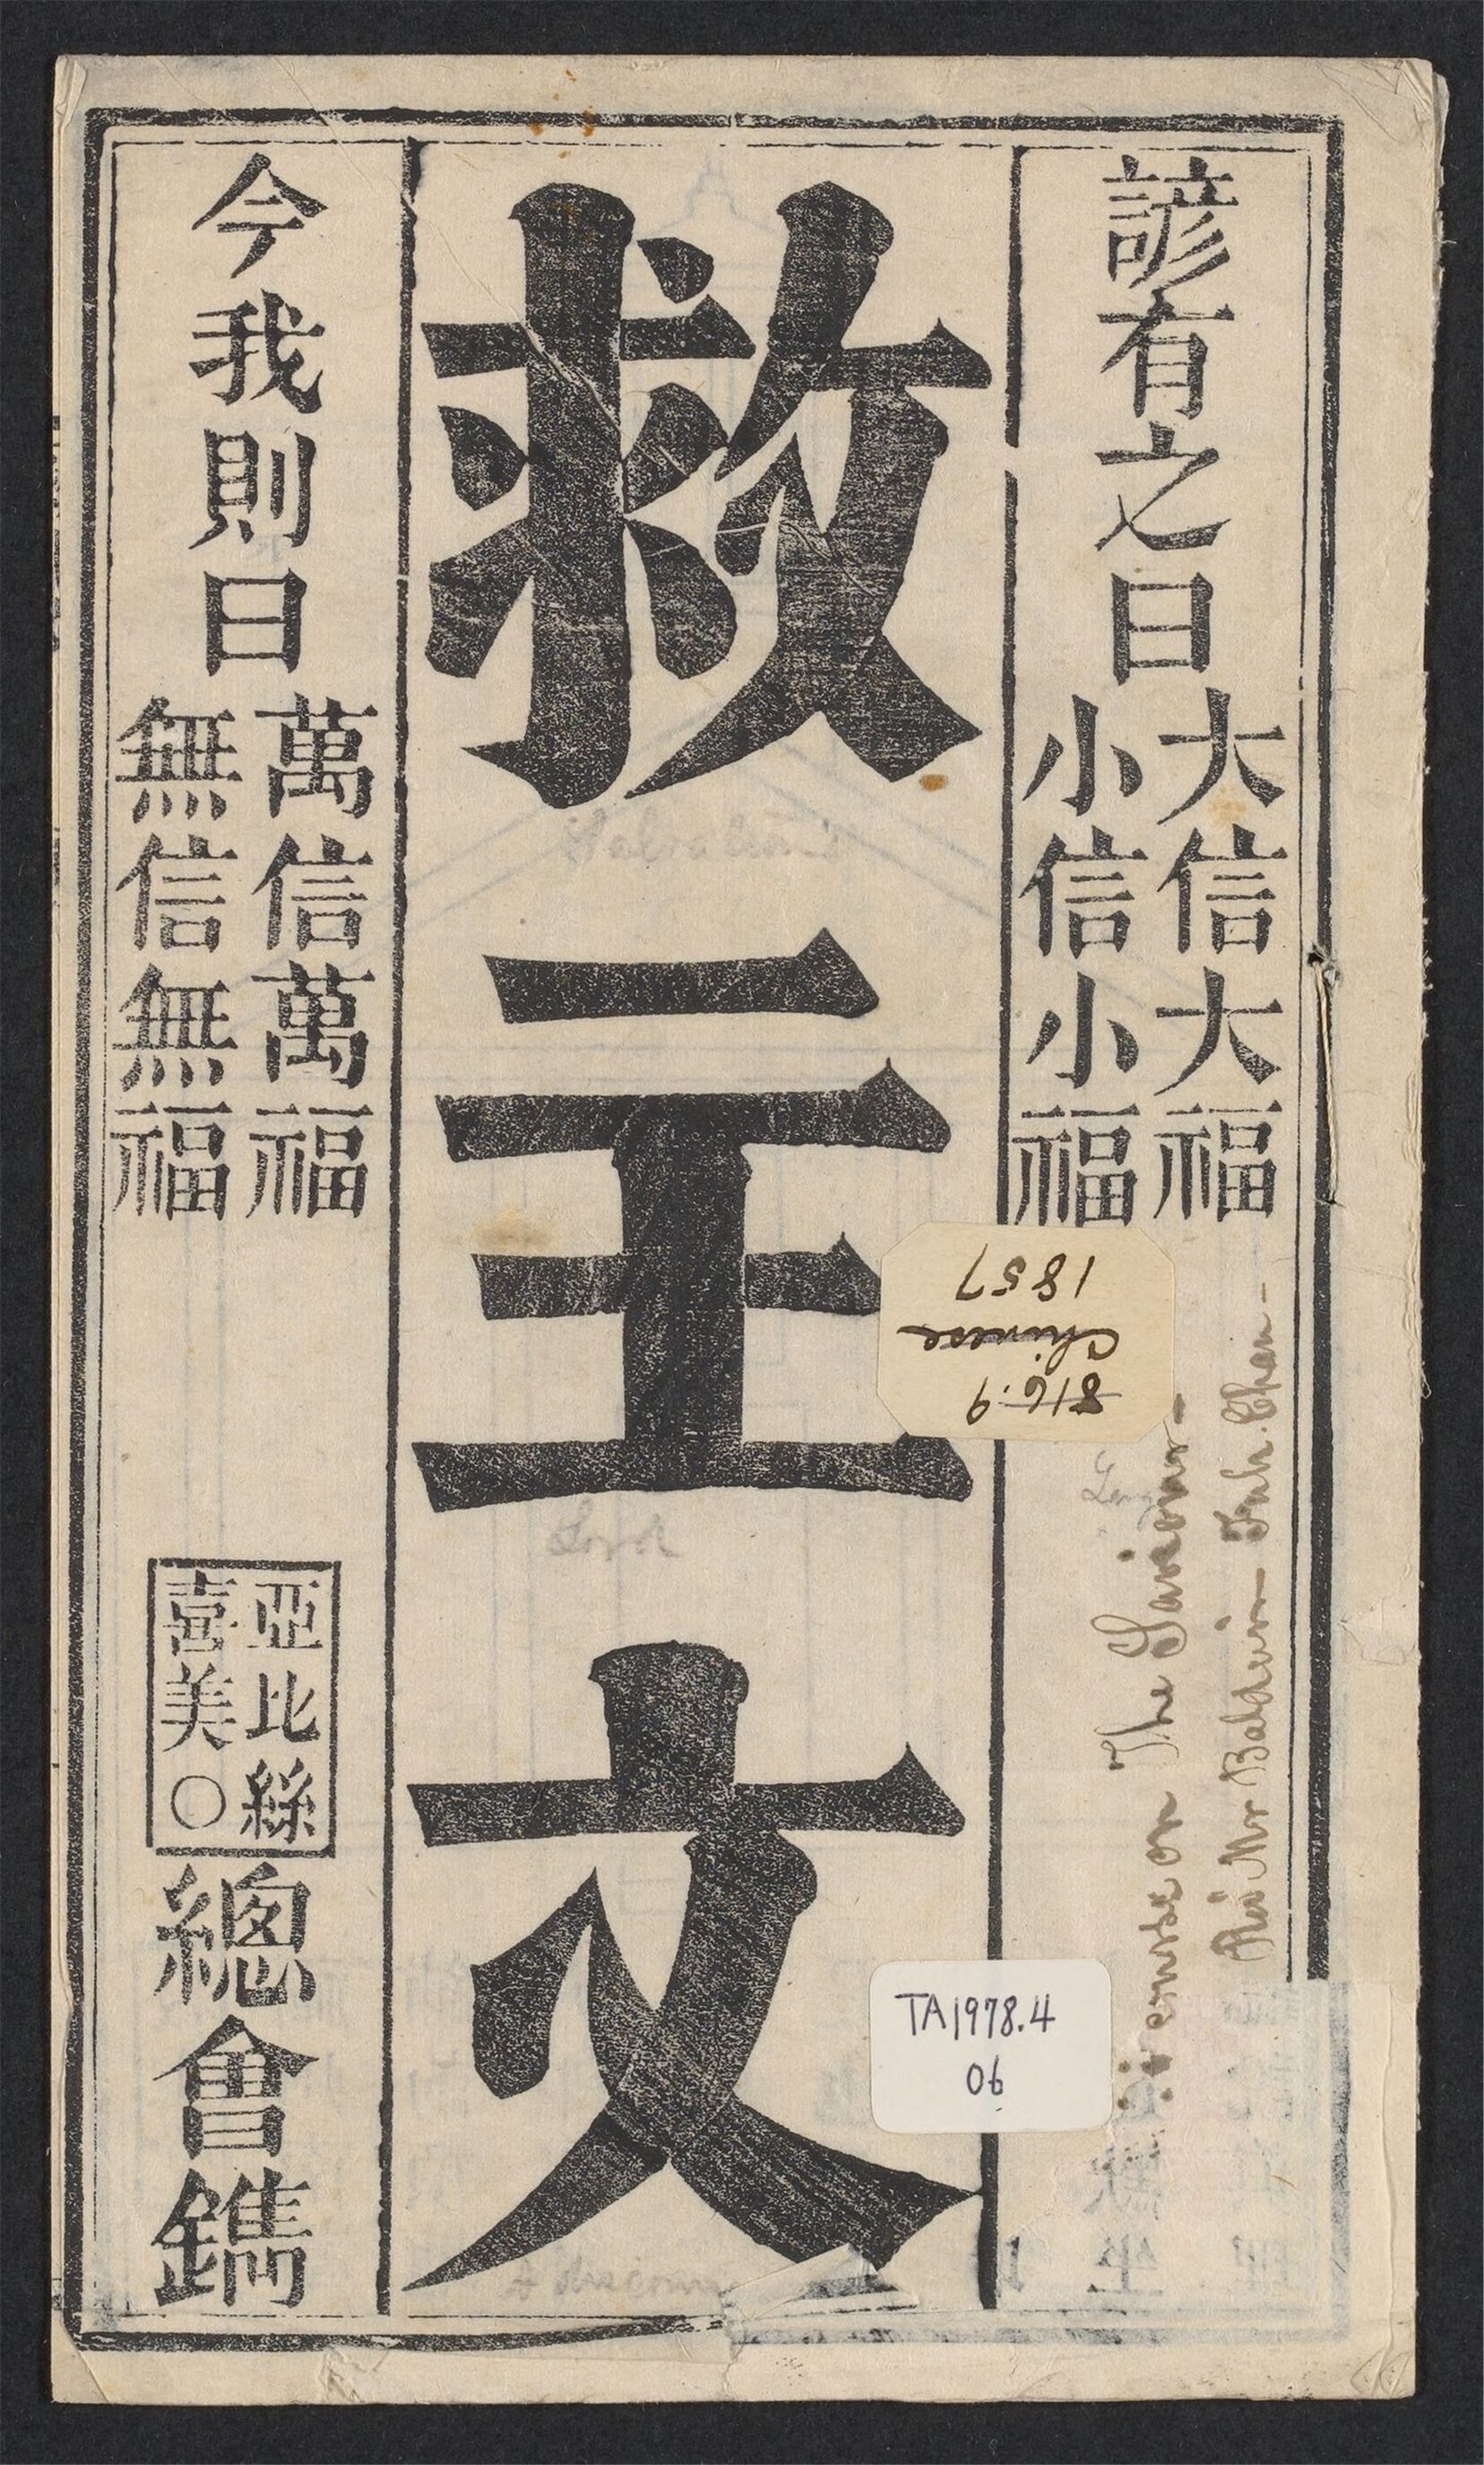 諺有之曰
大信大福
小信小福
救主文
今我則曰
萬信萬福
無信無福
亞比絲
喜美〇
總會鐫
Lord
816.9
Chinese
1857
on The Saviour -
Rev Mr Baldwin - Fuh.Chau -
TA1978.4
06